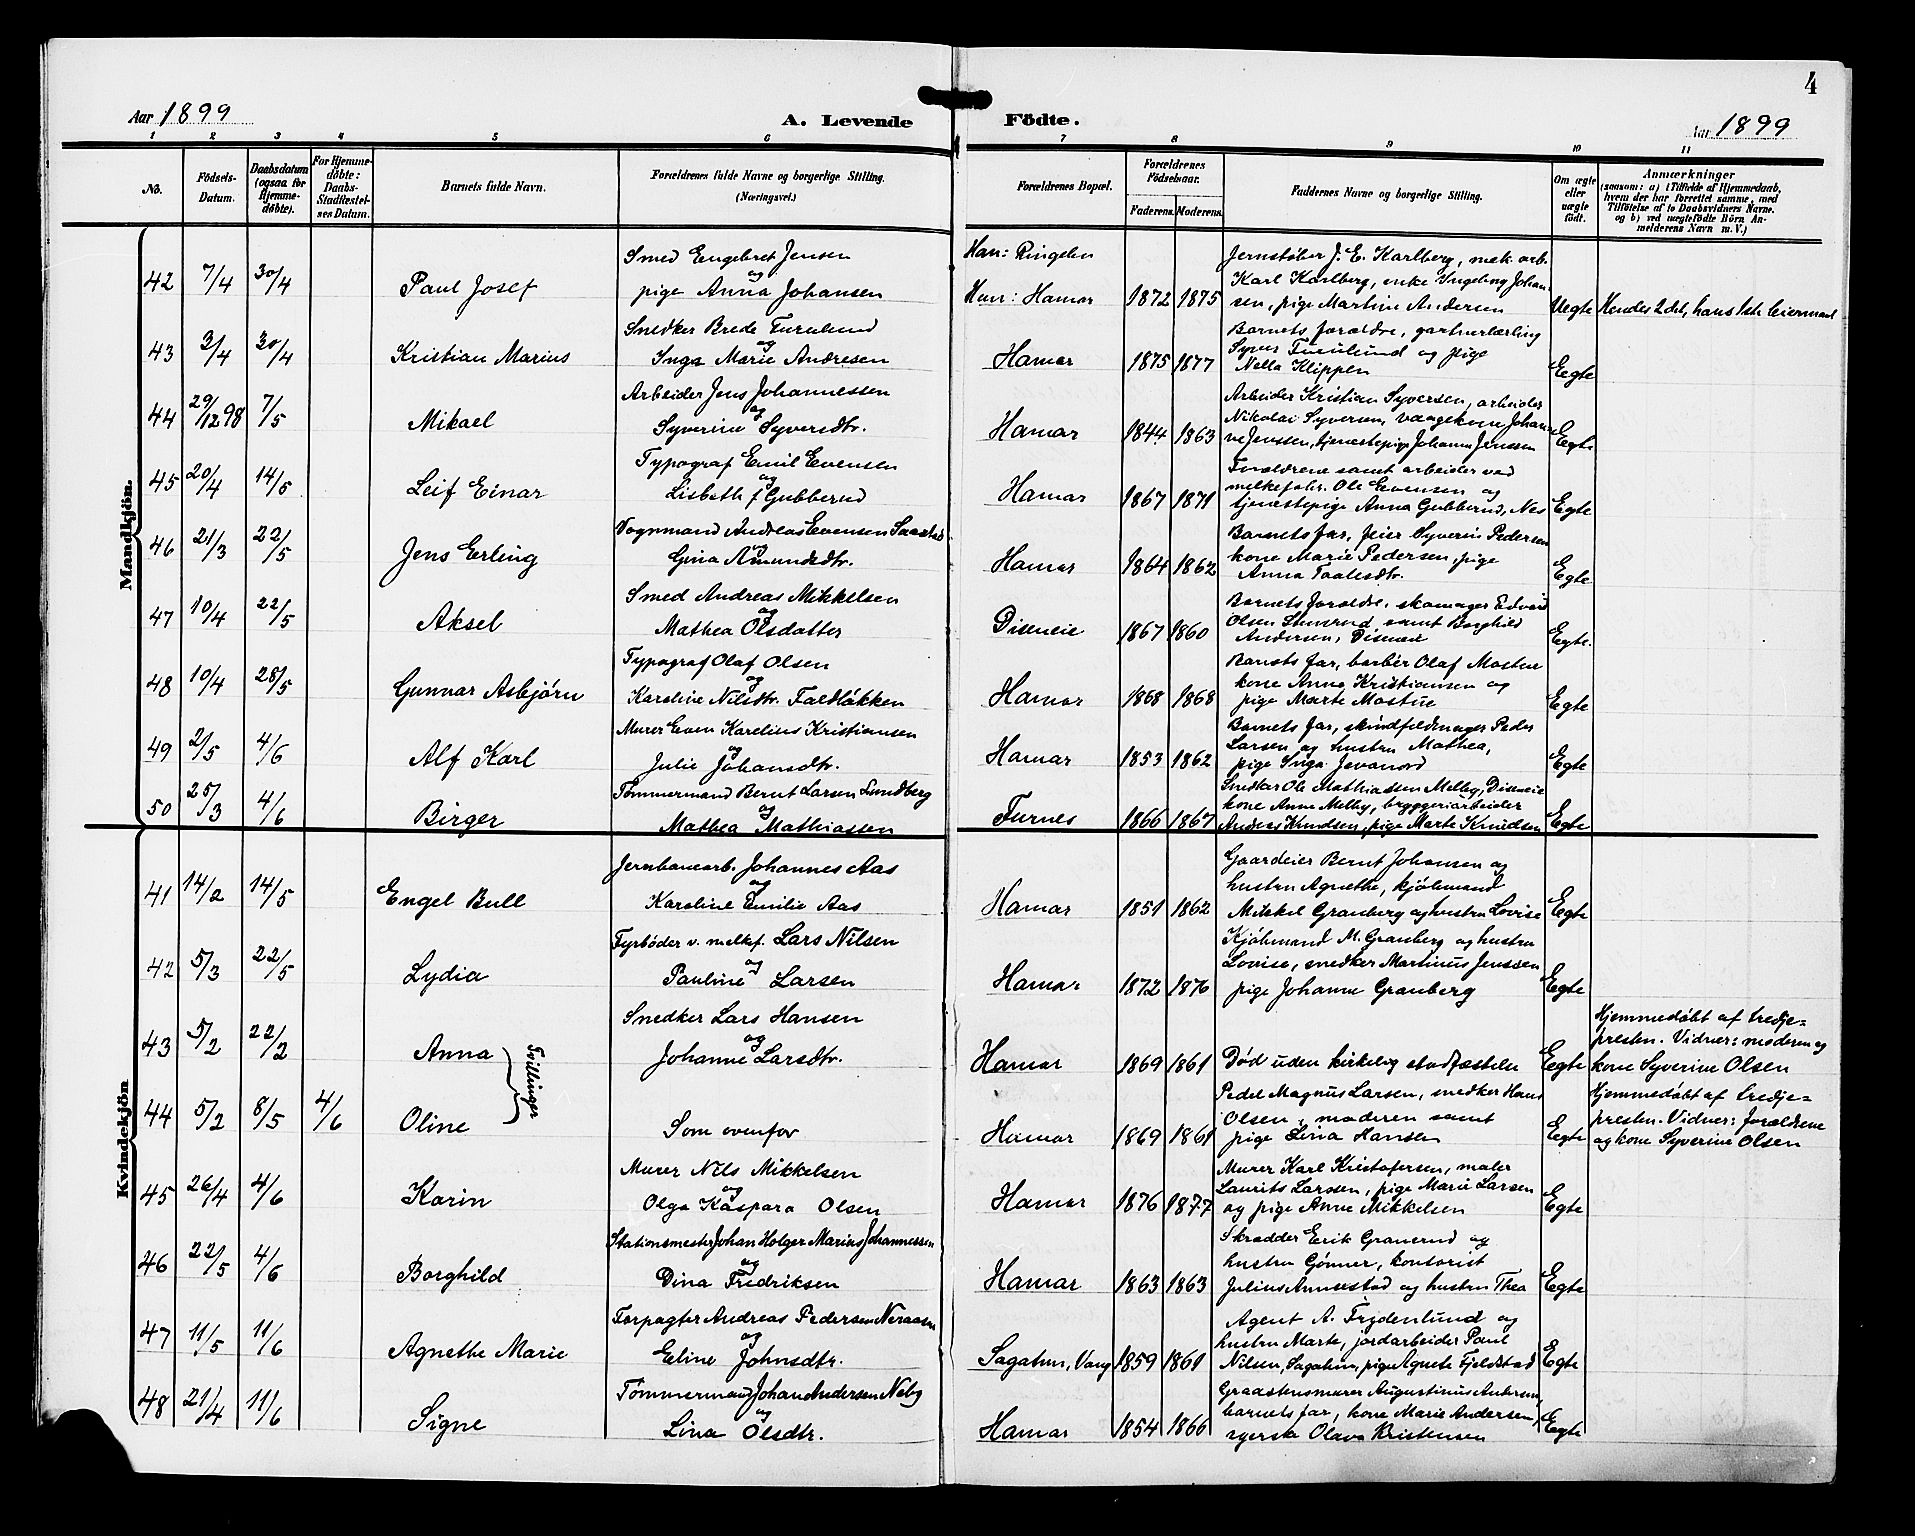 4
Aar 1899
A. Levende Födte.
Aar 1899
1 2 3 4 5 6 7 8 9 10 11
No.
Födsels-Datum.
Daabsdatum (ogsaa for Hjemme-döbte).
For Hjemme-döbte: Daabs-Stadfæstel-ses Datum.
Barnets fulde Navn.
Forældrenes fulde Navne og borgerlige Stilling. (Næringsvei.)
Forældrenes Bopæl.
Forældrenes Födselsaar.
Faderens. Moderens.
Faddernes Navne og borgerlige Stilling.
Om ægte eller uægte födt.
Anmærkninger
(saasom: a) i Tilfælde af Hjemmedaab,
hvem der har forrettet samme, med
Tilföielse af to Daabsvidners Navne.
og b) ved uægtefödte Börn An-
melderens Navn m. V.)
Mandkjön.
42 7/4 30/4 Paul Josef
Smed Engebret Jensen
og
pige Anna Johansen
Han: Ringelen
Hun: Hamar 1872 1875
Jernstøber J. E. Karlberg, mek. arb.
Karl Karlberg, enke Ingeborg Johan-
sen, pige Martine Andersen
Uegte Hendes 2det, hans 1ste leiermaal
43 3/4 30/4 Kristian Marius
Snedker Brede Furulund
og
Inga Marie Andresen
Hamar 1875 1877
Barnets forældre, gartnerlærling
Syver Furulund og pige
Nella Klippen
Egte
44 29/12 98 7/5 Mikael
Arbeider Jens Johannessen
og
Syverine Syversdtr.
Hamar 1844 1863
Arbeider Kristian Syversen, arbeider
Nikolai Syversen, vaagekone Johan-
ne Jenssen, tjenestepige Johanne Jenssen
Egte
45 20/4 14/5 Leif Einar
Typograf Emil Evensen
og
Lisbeth f. Gubberud
Hamar 1867 1871
Forældrene samt arbeider ved
melkefabr. Ole Evensen og
tjenestepige Anna Gubberud, Nes
Egte
46 21/3 22/5 Jens Erling
Vognmand Andreas Evensen Saastad
og
Gina Amundsdtr.
Hamar 1864 1862
Barnets far, feier Syverin Pedersen
kone Marie Pedersen, pige
Anna Taalesdtr.
Egte
47 10/4 22/5 Aksel
Smed Andreas Mikkelsen
og
Mathea Olsdatter
Diseneie 1867 1860
Barnets forældre, skomager Edvard
Olsen Stensrud samt Borghild
Andersen, Diseneie
Egte.
48 10/4 28/5 Gunnar Asbjørn
Typograf Olaf Olsen
og
Karoline Nilsdtr. Faldløkken
Hamar 1868 1868
Barnets far, barbér Olaf Mostue
kone Anna Kristiansen og
pige Marte Mostue
Egte
49 2/5 4/6 Alf Karl
Murer Even Karelius Kristiansen
og
Julie Johansdtr.
Hamar 1853 1862
Barnets far, skindfeldmager Peder
Larsen og hustru Mathea,
pige Inga Jevanord
Egte
50 25/3 4/6 Birger
Tømmermand Bernt Larsen Lundberg
og
Mathea Mathiassen
Furnes 1866 1867
Snedker Ole Mathiassen Melby, Diseneie
kone Anne Melby, bryggeriarbeider
Anders Knudsen, pige Marte Knudsen
Egte
Kvindekjön
41 14/2 14/5 Engel Bull
Jernbanearb. Johannes Aas
og
Karoline Emilie Aas
Hamar 1851 1862
Gaardeier Bernt Johansen og
hustru Agnethe, kjølemand
Mikkel Granberg og hustru Lovise
Egte
42 5/3 22/5 Lydia
Fyrbøder v. melkef. Lars Nilsen
og
Pauline Larsen
Hamar 1872 1876
Kjølemand M. Granberg og hustru
Lovise, snedker Martinus Jenssen
pige Johanne Granberg
Egte
43 5/2 22/2 Anna
Tvillinger
Snedker Lars Hansen
og
Johanne Larsdtr.
Hamar 1869 1861
Død uden kirkelig stadfæstelse
Egte
Hjemmedøbt af tredje-
presten. Vidner: moderen og
kone Syverine Olsen
44 5/2 8/5 4/6 Oline
Som ovenfor
Hamar 1869 1861
Pedel Magnus Larsen, snedker Hans
Olsen, moderen samt
pige Lina Hansen
Egte
Hjemmedøbt af tredje-
presten. Vidner: forældrene
og kone Syverine Olsen
45 26/4 4/6 Karin
Murer Nils Mikkelsen
og
Olga Kaspara Olsen
Hamar 1876 1877
Murer Karl Kristofersen, maler
Laurits Larsen, pige Marie Larsen
og pige Anne Mikkelsen
Egte
46 22/5 4/6 Borghild
Stationsmester Johan Holger Marius Johannessen
og
Dina Fredriksen
Hamar 1863 1863
Skrædder Erik Granerud og
hustru Gønner, kontorist
Julius Annerstad og hustru Thea
Egte
47 11/5 11/6 Agnethe Marie
Forpagter Andreas Pedersen Neraasen
og
Eline Johnsdtr.
Sagatun, Vang 1859 1861
Agent A. Frydenlund og
hustru Marte, jordarbeider Paul
Nilsen, Sagatun, pige Agnete Fjeldstad
Egte
48 21/4 11/6 Signe
Tømmermand Johan Andersen Neby
og
Lina Olsdtr.
Hamar 1854 1866
Graastensmurer Augustinus Andersen,
barnets far, kone Marie Andersen,
syerske Olava Kristensen
Egte